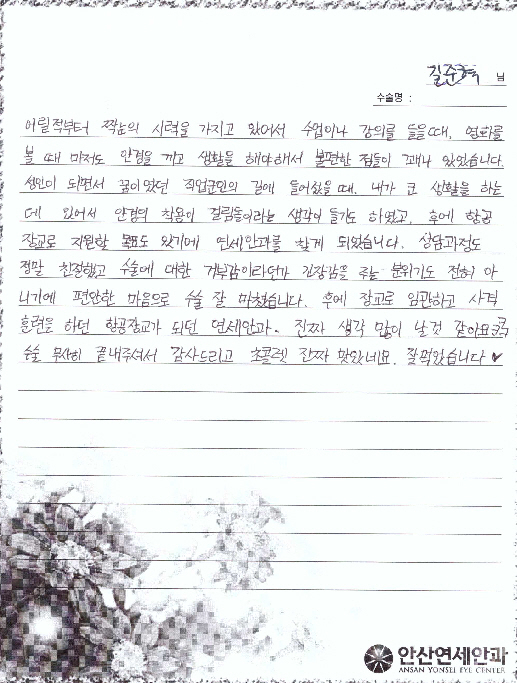 길준혁 님
수술명 :
어릴적부터 짝눈의 시력을 가지고 있어서 수업이나 강의를 들을때, 영화를
볼 때 마저도 안경을 끼고 생활을 해야해서 불편한 점들이 꽤나 있었습니다.
성인이 되면서 꿈이었던 직업군인의 길에 들어섰을 때, 내가 군 생활을 하는
데 있어서 안경의 착용이 걸림돌이라는 생각이 들기도 하였고, 후에 항공
장교로 지원할 목표도 있기에 연세안과를 찾게 되었습니다. 상담과정도
정말 친절했고 수술에 대한 거부감이라던가 긴장감을 주는 분위기도 전혀 아
니기에 편안한 마음으로 수술 잘 마쳤습니다. 후에 장교로 임관하고 사격
훈련을 하던 항공장교가 되던 연세안과. 진짜 생각 많이 날것 같아요ㅋㅋ
수술 무사히 끝내주셔서 감사드리고 초콜렛 진짜 맛있네요. 잘먹었습니다 ♥
안산연세안과
ANSAN YONSEI EYE CENTER